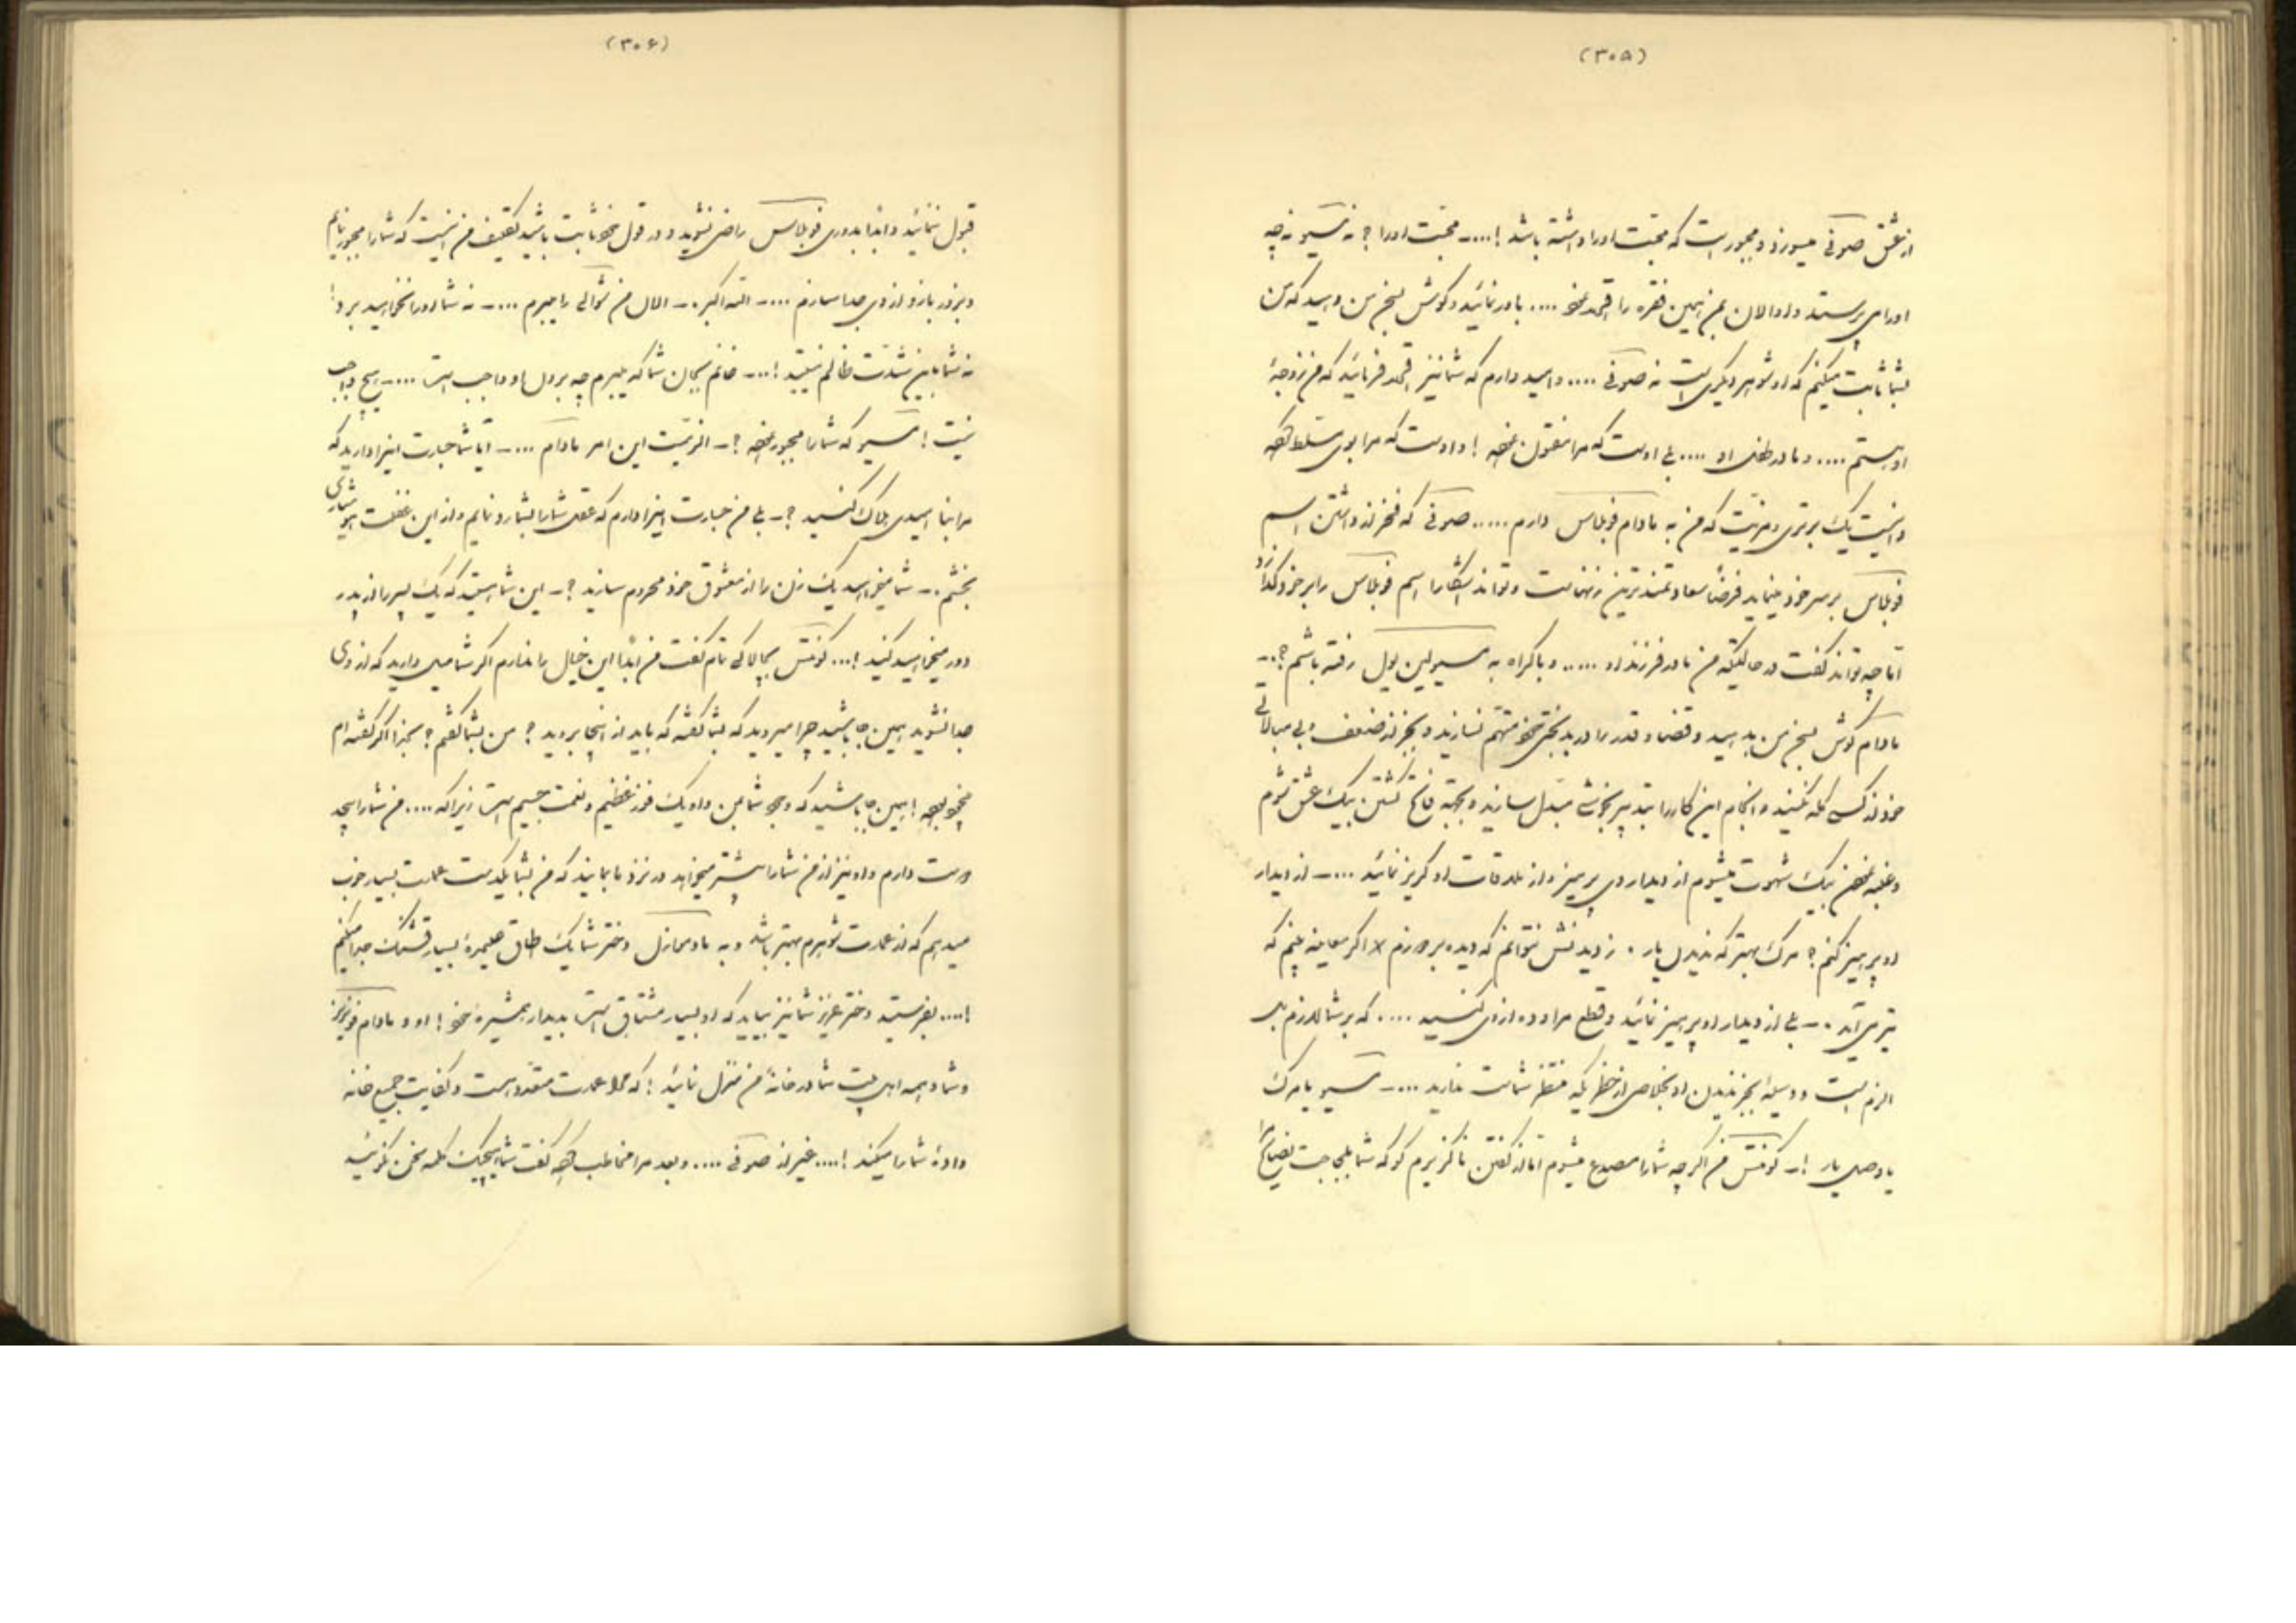 (۳۰۵)
از عشق صوفی میسوزد و مجبور است که محبت او را داشته باشد !.... محبت او را ؟ نه مسیو نه چه
او را می پرستد و او الان بمن همین فقره را نمود .... باور نمائید و گوش بسخن من دهید که من
بشما ثابت میکنم که او شوهر دیگری است نه صوفی .... و امید دارم که شما نیز فرمائید که من زوجهٔ
او هستم .... و مادر طفل او .... بلی اوست که مرا مفتون نموده ! و اوست که مرا بوی مسلط کرده
و اینست یک برتری و مزیت که من به مادام فوبلاس دارم ..... صوفی که فخر از داشتن اسم
فوبلاس بر سر خود مینماید فرضاً سعادتمندترین زنهاست و تواند آشکارا اسم فوبلاس را بر خود گذارد
اما چه تواند گفت در حالتیکه من مادر فرزند او ..... و با کراه به مسیو لین یول رفته باشم ؟ –
مادام گوش بسخن من بدهید و قضا و قدر را در بدبختی خود متهم نسازید و بجز از ضعف و بی مبالاتی
خود از کسی گله نکنید و انجام این کار را بتدبیر بخوشی مبدل سازید و بجهة فاتح گشتن بیک عشق شوم
و غلبه نمودن بیک شهوت میشوم از دیدار وی پرهیز و از ملاقات او گریز نمائید .... – از دیدار
او پرهیز کنم ؟ مرگ بهتر که ندیدن یار . ز دیدنش نتوانم که دیده بردوزم اگر معاینه بینم که
تیر می آید . – بلی از دیدار او پرهیز نمائید و قطع مراوده از وی کنید .... که بر شما لازم بل
الزم است و وسیله بجز ندیدن او بخلاصی از خطریکه منتظر شماست ندارید .... – مسیو یا مرگ
یا وصل یار ! – کونتس من اگرچه شما را مصدع میشوم اما از گفتن ناگزیرم گو که شما بلجاجت نصایح مرا
(۳۰۶)
قبول ننمائید و ابداً بدوری فوبلاس راضی نشوید و در قول خود ثابت باشید تکلیف من اینست که شما را مجبور نمایم
و بزور بازو از وی جدا سازم .... – الله اکبر . – الان من شوالی را میبرم .... – نه شما او را نخواهید برد !
نه شما باین شدت ظالم نیستید !... – خانم بجان شما که میبرم چه بر دل او واجب است .... – هیچ واجب
نیست ! مسیو که شما را مجبور نموده ؟ – اهمیت این امر مادام .... – آیا شما جسارت اینرا دارید که
مرا بنا امیدی هلاک کنید ؟ – بلی من جسارت اینرا دارم که عقل شما را بشما رد نمایم و از این غفلت هوشیاری
بخشم . – شما میخواهید یک زن را از معشوق خود محروم سازید ؟ – این شما هستید که یک پسر را از پدر
دور میخواهید کنید !... کونتس بچالاکی تمام گفت من ابداً این خیال را ندارم اگر شما میل دارید که از وی
جدا نشوید همین جا باشید چرا میروید که بشما گفته که باید از اینجا بروید ؟ من بشما گفتم ؟ بخدا اگر گفته ام
همین جا باشید که وجود شما بمن و او یک فوز عظیم و نعمت جسیم است زیرا که .... من شما را بیحد
دوست دارم و او نیز از من شما را بیشتر میخواهد در نزد ما بمانید که من بشما یکدست عمارت بسیار خوب
میدهم که از عمارت شوهرم بهتر باشد و به مادموازل دختر شما یک اطاق علیحدهٔ بسیار قشنگ جدا میکنم
!.... بفرستید دختر عزیز شما نیز بیاید که او بسیار مشتاق است بدیدار همشیره خود ! او و مادام فونروز
و شما و همه اهل بیت شما در خانهٔ من منزل نمائید ! که محلا عمارت متعدد است و کفایت جمیع خانه
دادهٔ شما را میکند !.... غیر از صوفی .... و بعد مرا مخاطب کرده گفت شما هیچیک کلمه سخن نگوئید